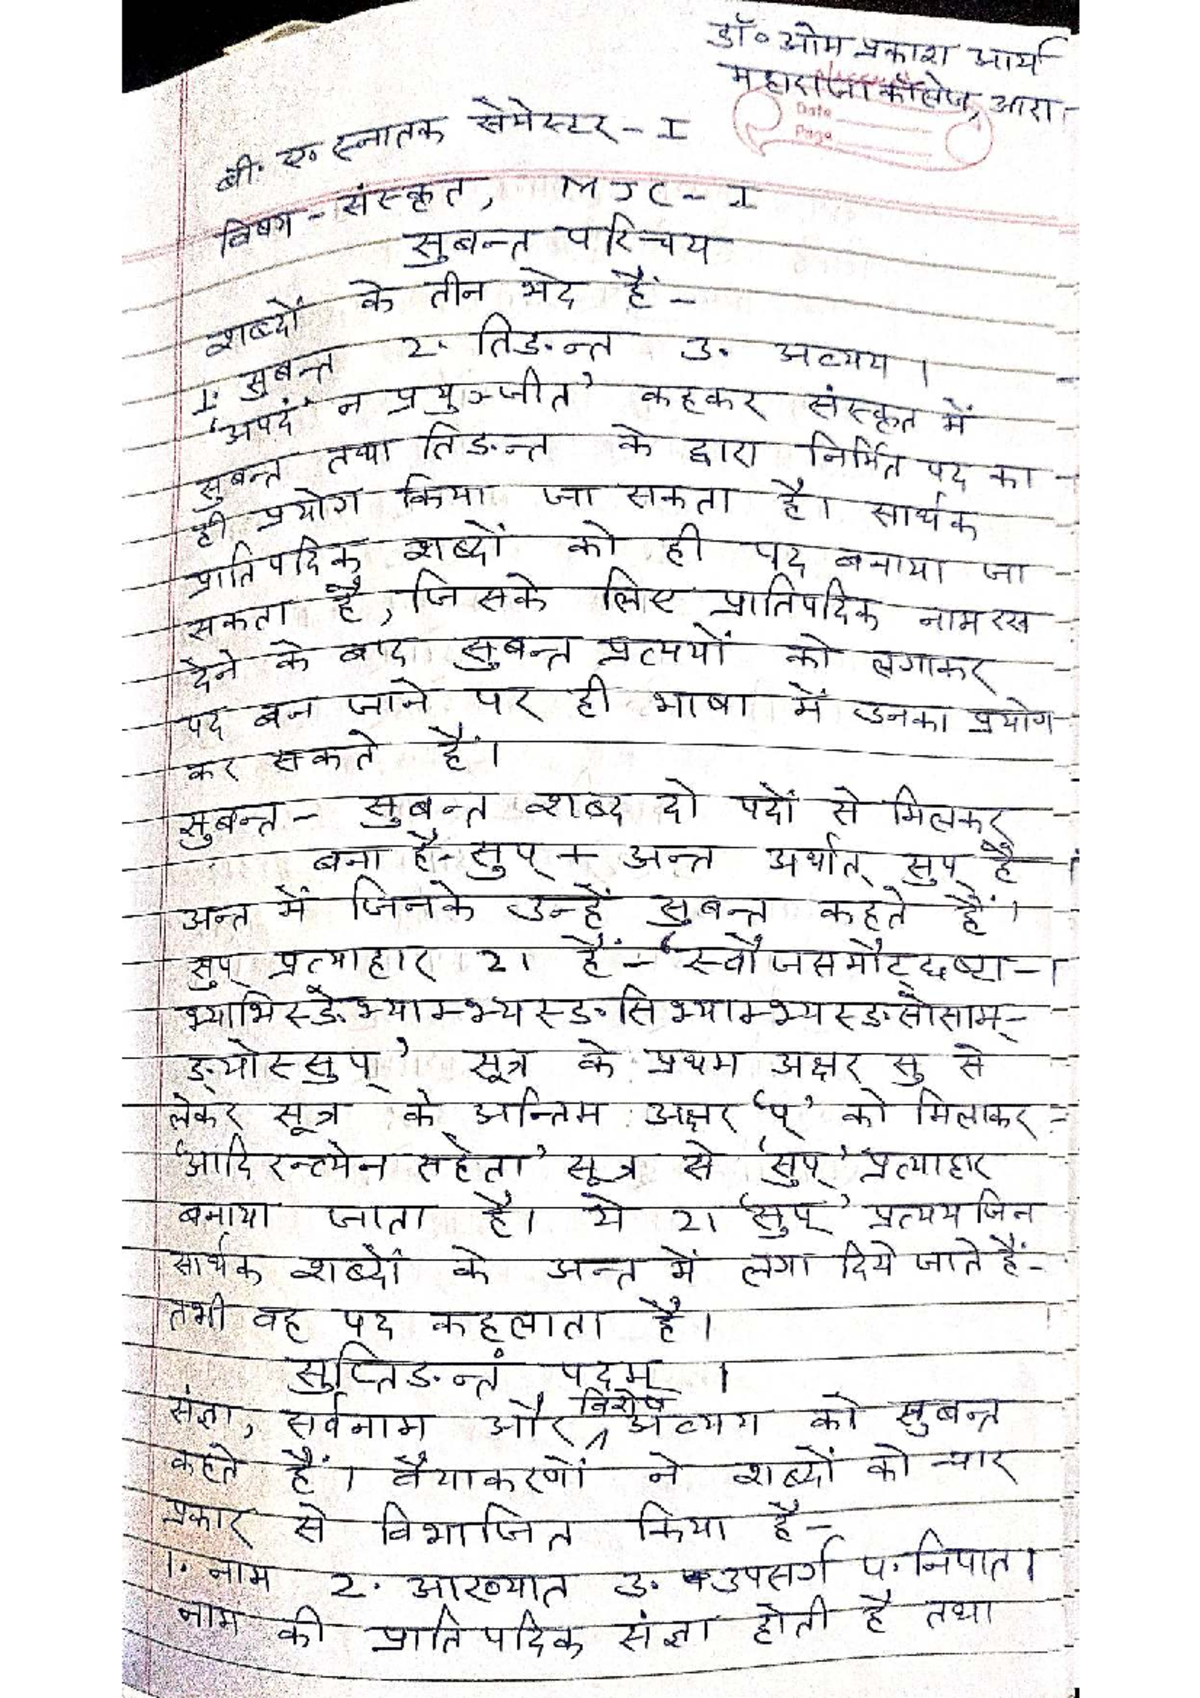 डॉ० ओम प्रकाश आर्य
महाराजा कॉलेज, आरा
Date
Page
बी. ए. स्नातक सेमेस्टर - I
विषय - संस्कृत, MJC - I
सुबन्त परिचय
शब्दों के तीन भेद हैं -
1. सुबन्त 2. तिङन्त 3. अव्यय ।
'अपदं न प्रयुञ्जीत' कहकर संस्कृत में
सुबन्त तथा तिङन्त के द्वारा निर्मित पद का
ही प्रयोग किया जा सकता है। सार्थक
प्रातिपदिक शब्दों को ही पद बनाया जा
सकता है, जिसके लिए प्रातिपदिक नाम रख
देने के बाद सुबन्त प्रत्ययों को लगाकर
पद बन जाने पर ही भाषा में उनका प्रयोग
कर सकते हैं।
सुबन्त - सुबन्त शब्द दो पदों से मिलकर
बना है - सुप् + अन्त अर्थात् सुप् है
अन्त में जिनके उन्हें सुबन्त कहते हैं।
सुप् प्रत्याहार 21 हैं - 'स्वौजसमौट्छष्टा-
भ्याभिस्ङेभ्याम्भ्यस्ङसिभ्याम्भ्यस्ङसोसाम्-
ङ्योस्सुप्' सूत्र के प्रथम अक्षर सु से
लेकर सूत्र के अन्तिम अक्षर 'प्' को मिलाकर
'आदिरन्त्येन सहेता' सूत्र से 'सुप्' प्रत्याहार
बनाया जाता है। ये 21 'सुप्' प्रत्यय जिन
सार्थक शब्दों के अन्त में लगा दिये जाते हैं-
तभी वह पद कहलाता है।
सुप्तिङन्तं पदम् ।
संज्ञा, सर्वनाम और विशेष अव्यय को सुबन्त
कहते हैं। वैयाकरणों ने शब्दों को चार
प्रकार से विभाजित किया है -
1. नाम 2. आख्यात 3. उपसर्ग 4. निपात।
नाम की प्रातिपदिक संज्ञा होती है तथा